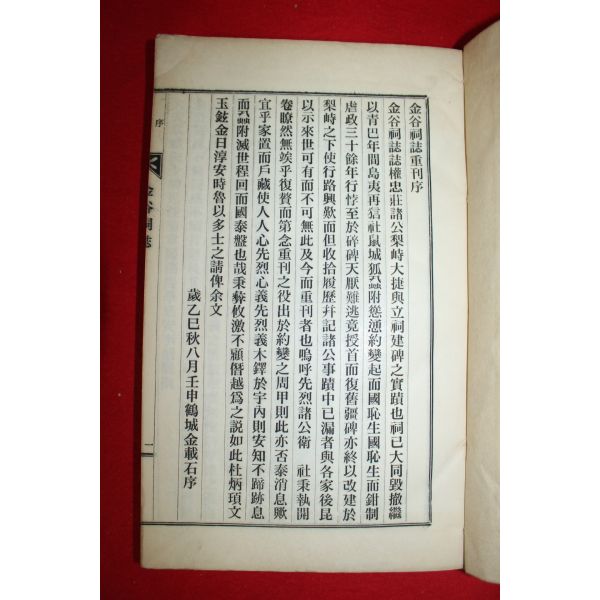 金谷祠誌重刊序
金谷祠誌誌權忠莊諸公梨峙大捷與立祠建碑之實蹟也祠已大同毀撤繼
以靑巴年間島夷再猘社鼠城狐蝨附慫慂約變起而國恥生國恥生而鉗制
虐政三十餘年行悖至於碎碑天厭難逃竟授首而復舊疆碑亦終以改建於
梨峙之下使行路興歎而但收拾履歷幷記諸公事蹟中已漏者與各家後昆
以示來世可有而不可無此及今而重刊者也嗚呼先烈諸公衛 社秉執開
卷瞭然無竢乎復贅而第念重刊之役出於約變之周甲則此亦否泰消息歟
宜乎家置而戶藏使人人心先烈心義先烈義木鐸於宇內則安知不蹄跡息
而蝨附滅世程回而國泰盤也哉秉彜攸激不顧僭越爲之說如此杜炳頊文
玉鉉金日淳安時魯以多士之請俾余文
歲乙巳秋八月壬申鶴城金載石序
序
金谷祠誌
一